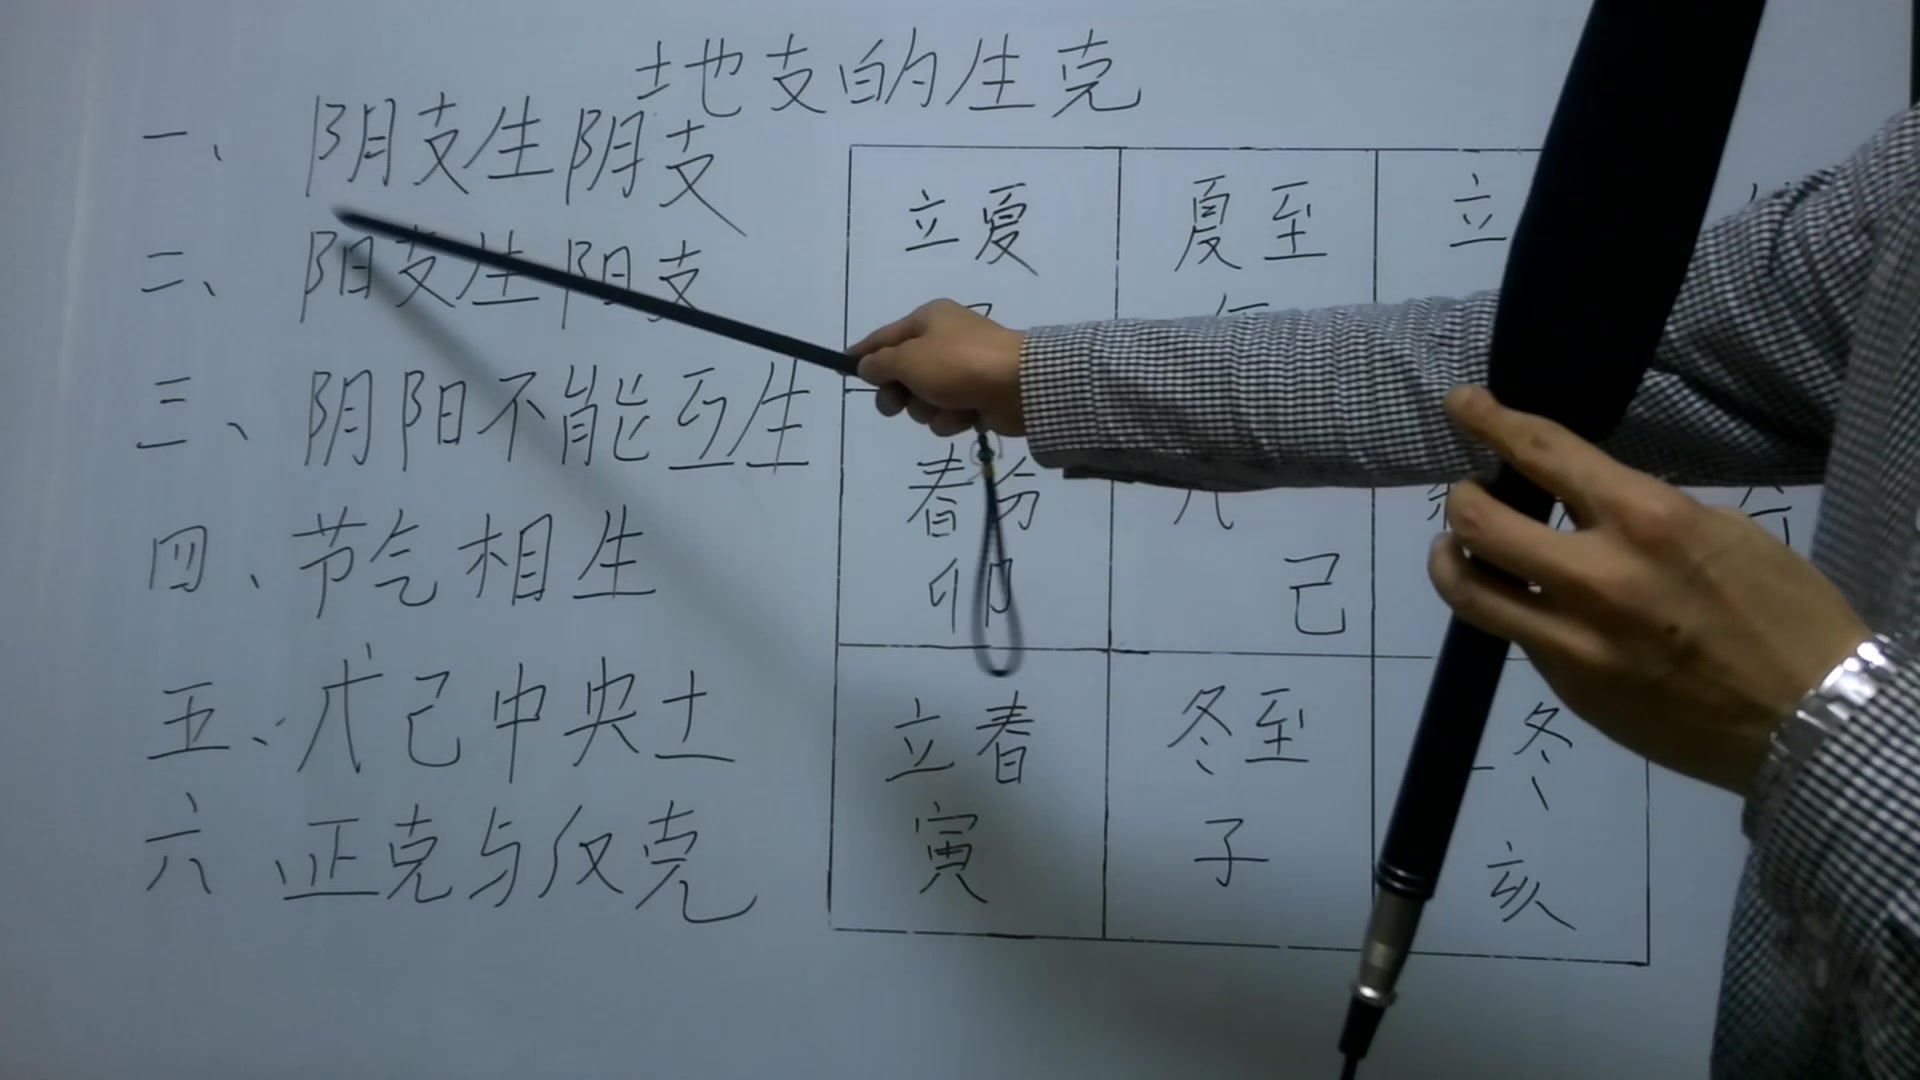 地支的生克
一、 阴支生阴支
二、 阳支生阳支
三、 阴阳不能互生
四、 节气相生
五、 戊己中央土
六 正克与仅克
立夏 夏至 立
春分
卯 己
立春 冬至 冬
寅 子 亥